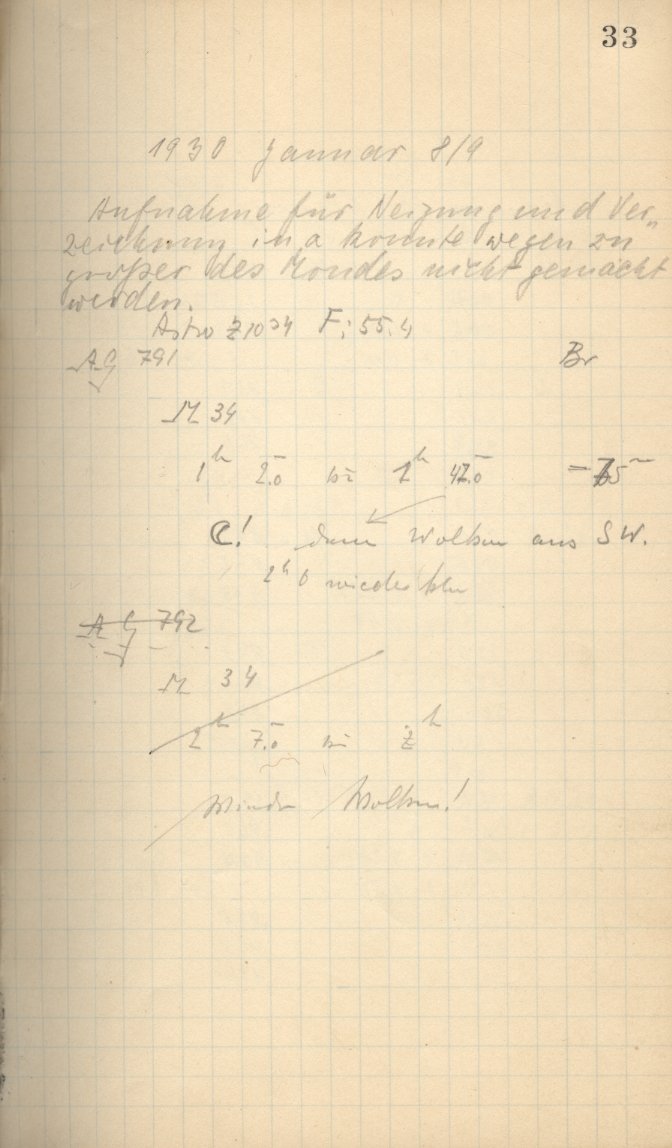 33
1930 Januar 8/9
Aufnahme für Neigung und Ver„
zeichnung in a konnte wegen zu
großer des Mondes nicht gemacht
werden.
Astro F: 55.4
AG 791 Br
M 34
1h 2m.0 bis 1h 47m.0
☾! dann Wolken aus SW.
2h 0 wieder klar
AG 792
M 34
2h 7m.0 bis 2h
Wieder Wolken!